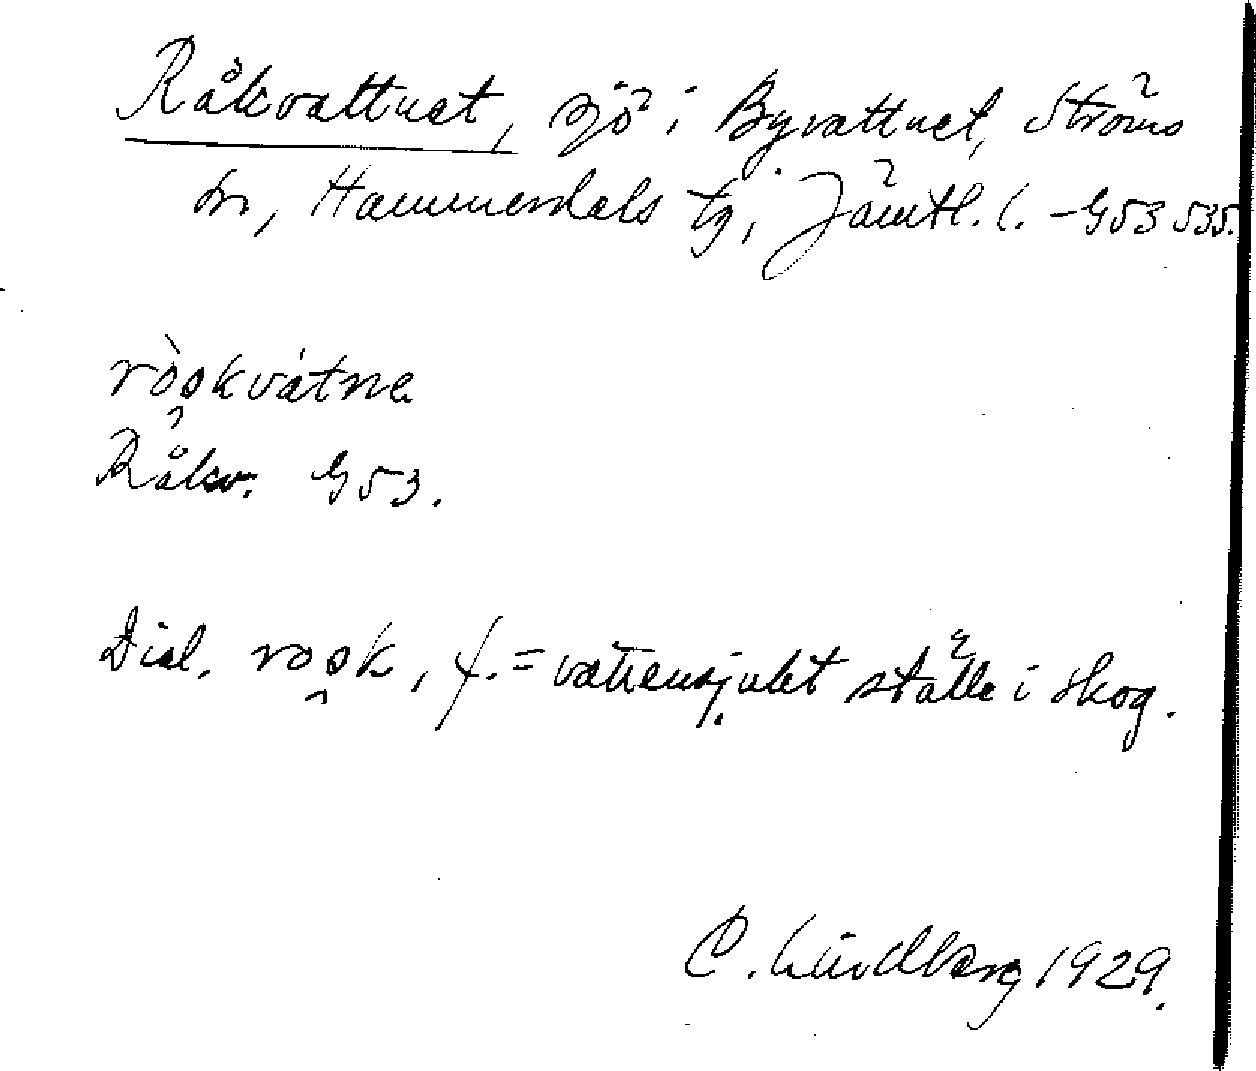 Råkvattnet, sjö i Byvattnet, Ströms
sn, Hammerdals tg, Jämtl. l. – G53 535.
ròo̭kvátne
Råkv. G53.
Dial. roo̭k, f. = vattensjukt ställe i skog.
C. Lindberg 1929.